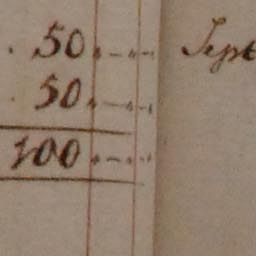 50 .-..-.. Sept
50 .-..-..
100 .-..-..